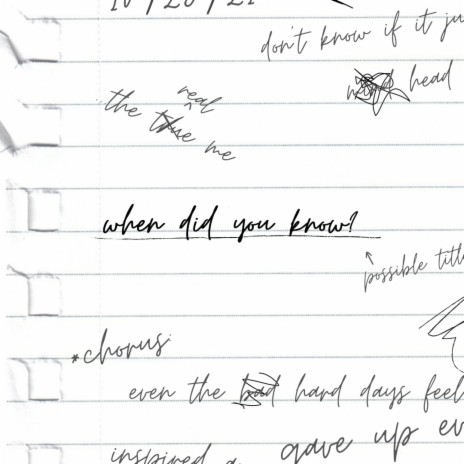 don't know if it
head
real
the true me
when did you know?
possible
*chorus
even the bad hard days feel
inspired a gave up